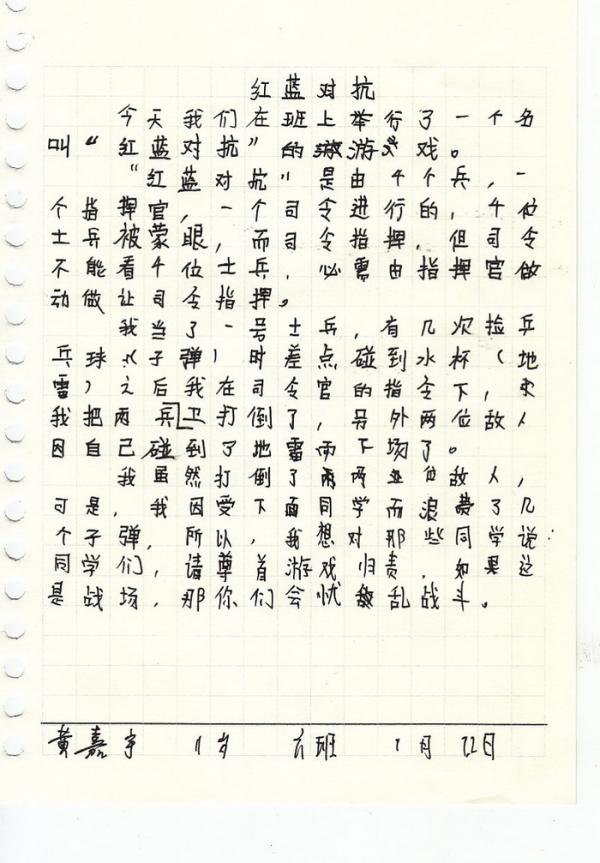 红蓝对抗
今天我们在班上举行了一个名
叫“红蓝对抗”的游戏。
“红蓝对抗”是由4个兵，一
个指挥官，一个司令进行的，4位
士兵被蒙眼，而司令指挥，但司令
不能看4位士兵，必需由指挥官做
动做让司令指挥。
我当了一号士兵，有几次捡兵
兵球（子弹）时差点碰到水杯（地
雷）之后我在司令官的指令下，
我把两兵卫打倒了，另外两位敌人
因自己碰到了地雷而下场了。
我虽然打倒了两位敌人，
可是，我因受下面同学而浪费了几
个子弹，所以，我想对那些同学说：
同学们，请尊首游戏归责，如果这
是战场，那你们会忧乱战斗。
黄嘉宇 11岁 六班 1月22日